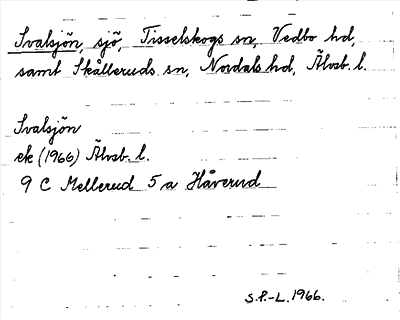 Svalsjön, sjö, Tisselskogs sn, Vedbo hd,
samt Skålleruds sn, Nordals hd, Älvsb. l.
Svalsjön
ek (1966) Älvsb. l.
9 C Mellerud 5 a Håverud
S.P.-L. 1966.